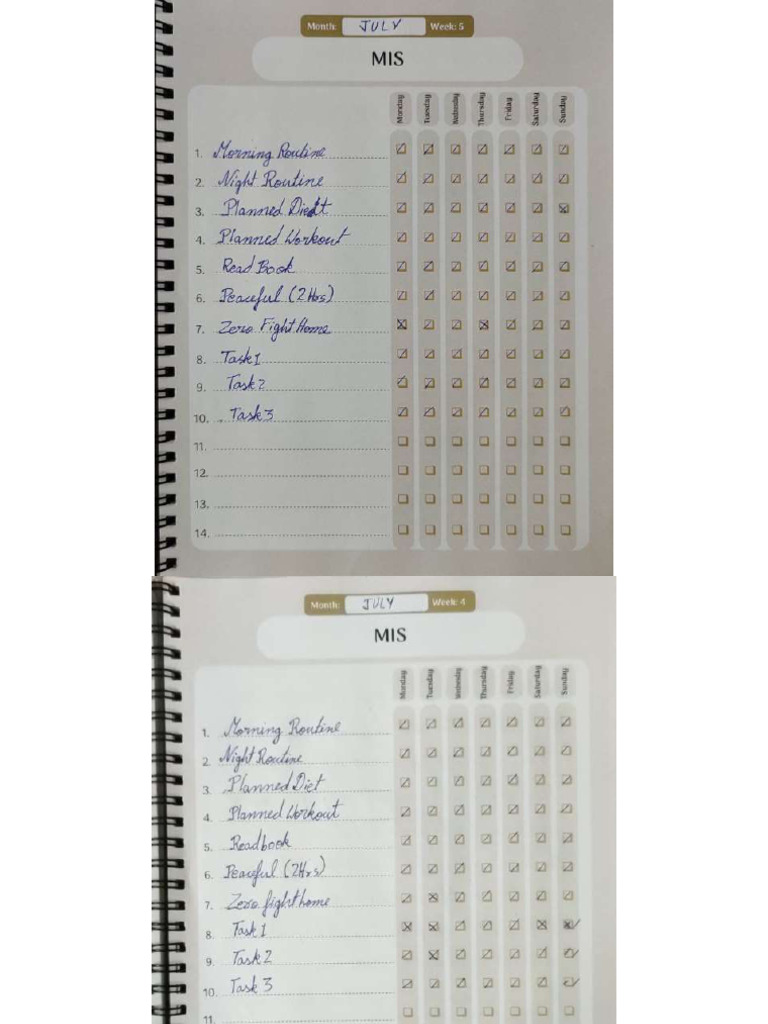 Month: JULY Week: 5
MIS
Monday Tuesday Wednesday Thursday Friday Saturday Sunday
1. Morning Routine
2. Night Routine
3. Planned Diet
4. Planned Workout
5. Read Book
6. Peaceful (2 Hrs)
7. Zero Fight Home
8. Task 1
9. Task 2
10. Task 3
11.
12.
13.
14.
Month: JULY Week: 4
MIS
Monday Tuesday Wednesday Thursday Friday Saturday Sunday
1. Morning Routine
2. Night Routine
3. Planned Diet
4. Planned Workout
5. Readbook
6. Peaceful (2Hrs)
7. Zero fight home
8. Task 1
9. Task 2
10. Task 3
11.